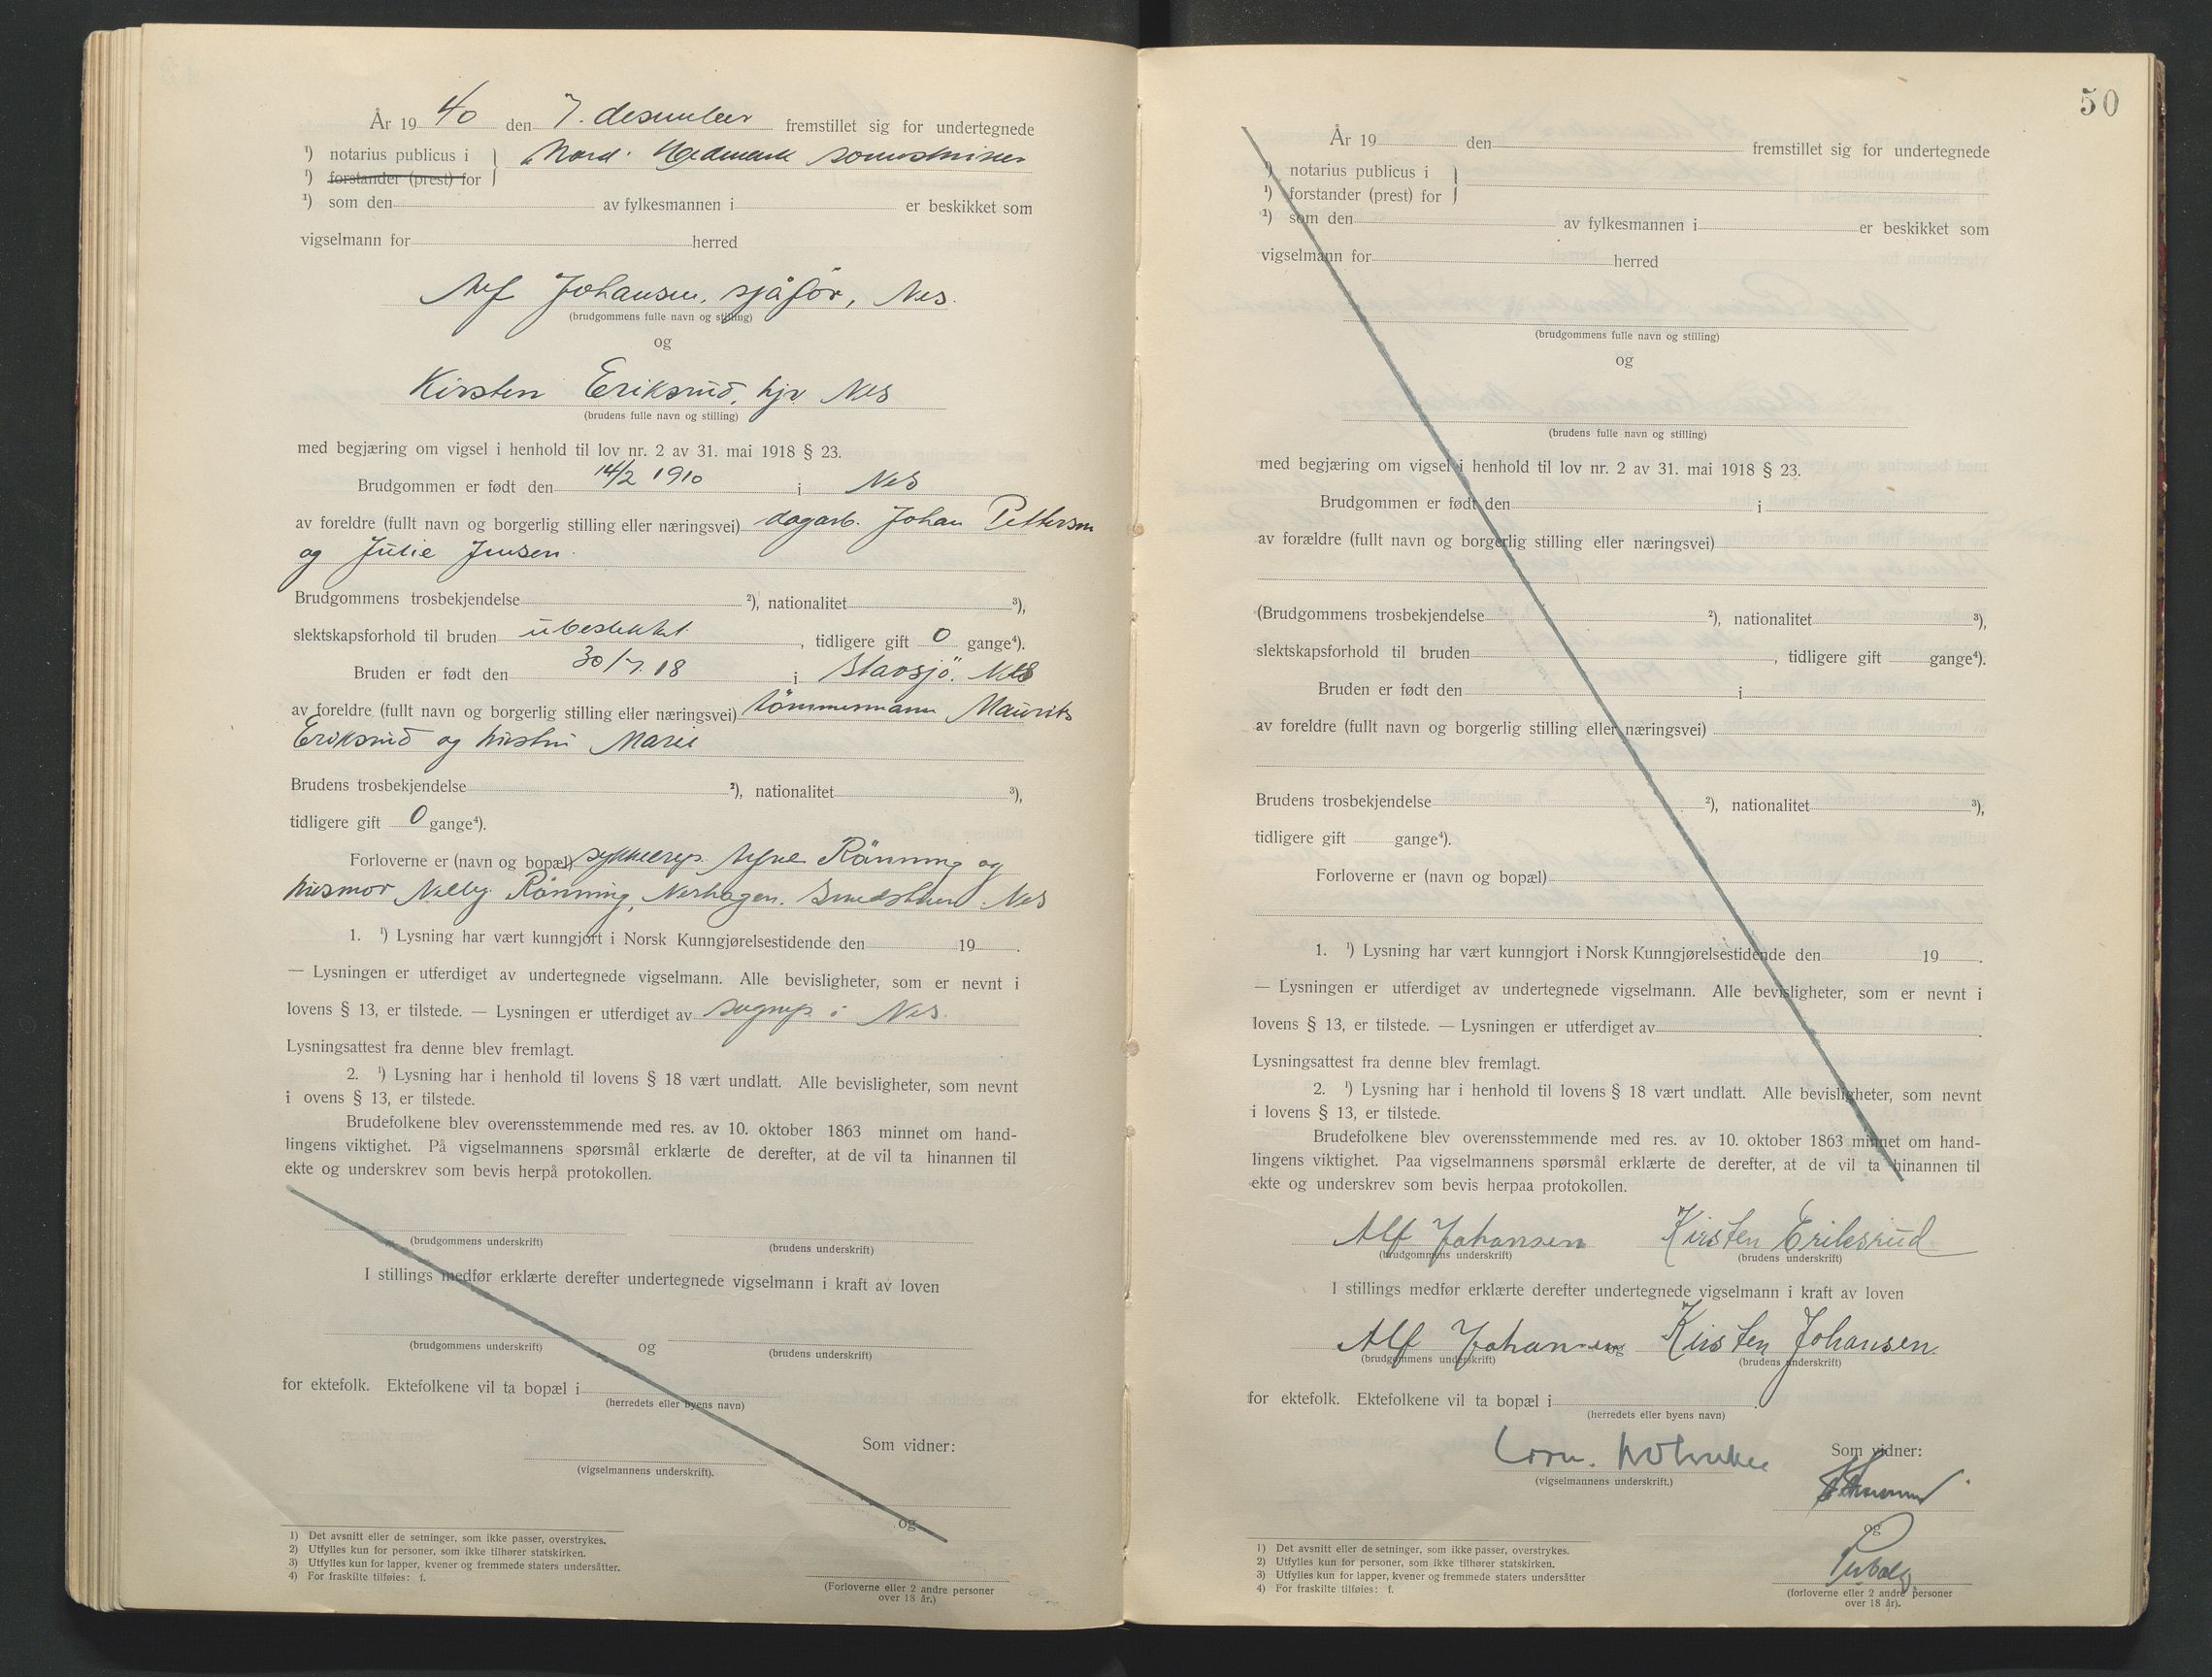 År 19 40 den 7. desember fremstillet sig for undertegnede
¹) notarius publicus i } Nord-Hedmark sorenskriver
¹) forstander (prest) for
¹) som den av fylkesmannen i er beskikket som
vigselmann for herred
Alf Johansen, sjåfør, Nes.
(brudgommens fulle navn og stilling)
og
Kirsten Eriksrud, hjv. Nes
(brudens fulle navn og stilling)
med begjæring om vigsel i henhold til lov nr. 2 av 31. mai 1918 § 23.
Brudgommen er født den 14/2 1910 i Nes
av foreldre (fullt navn og borgerlig stilling eller næringsvei) dagarb. Johan Pettersen
og Julie Jensen.
Brudgommens trosbekjendelse ²), nationalitet ³),
slektskapsforhold til bruden ubeslektet, tidligere gift 0 gange⁴).
Bruden er født den 30/7.18 i Stavsjö. Nes
av foreldre (fullt navn og borgerlig stilling eller næringsvei) tömmermann Maurits
Eriksrud og hustru Marie
Brudens trosbekjendelse ²), nationalitet ³),
tidligere gift 0 gange⁴).
Forloverne er (navn og bopæl) Rönning og
husmor Nelly Rönning, Nerhagen. Nes
1. ¹) Lysning har vært kunngjort i Norsk Kunngjørelsestidende den 19 .
— Lysningen er utferdiget av undertegnede vigselmann. Alle bevisligheter, som er nevnt i
lovens § 13, er tilstede. — Lysningen er utferdiget av sognepr. i Nes.
Lysningsattest fra denne blev fremlagt.
2. ¹) Lysning har i henhold til lovens § 18 vært undlatt. Alle bevisligheter, som nevnt
i ovens § 13, er tilstede.
Brudefolkene blev overensstemmende med res. av 10. oktober 1863 minnet om hand-
lingens viktighet. På vigselmannens spørsmål erklærte de derefter, at de vil ta hinannen til
ekte og underskrev som bevis herpå protokollen.
(brudgommens underskrift) (brudens underskrift)
I stillings medfør erklærte derefter undertegnede vigselmann i kraft av loven
og
(brudgommens underskrift) (brudens underskrift)
for ektefolk. Ektefolkene vil ta bopæl i
(herredets eller byens navn)
Som vidner:
(vigselmannens underskrift).
og
1) Det avsnitt eller de setninger, som ikke passer, overstrykes.
2) Utfylles kun for personer, som ikke tilhører statskirken.
3) Utfylles kun for lapper, kvener og fremmede staters undersåtter.
4) For fraskilte tilføies: f.
(Forloverne eller 2 andre personer
over 18 år.)
50
År 19 den fremstillet sig for undertegnede
¹) notarius publicus i }
¹) forstander (prest) for
¹) som den av fylkesmannen i er beskikket som
vigselmann for herred
(brudgommens fulle navn og stilling)
og
(brudens fulle navn og stilling)
med begjæring om vigsel i henhold til lov nr. 2 av 31. mai 1918 § 23.
Brudgommen er født den i
av forældre (fullt navn og borgerlig stilling eller næringsvei)
(Brudgommens trosbekjendelse ²), nationalitet ³),
slektskapsforhold til bruden , tidligere gift gange⁴).
Bruden er født den i
av foreldre (fullt navn og borgerlig stilling eller næringsvei)
Brudens trosbekjendelse ²), nationalitet ³),
tidligere gift gange⁴).
Forloverne er (navn og bopæl)
1. ¹) Lysning har vært kunngjort i Norsk Kunngjørelsestidende den 19 .
— Lysningen er utferdiget av undertegnede vigselmann. Alle bevisligheter, som er nevnt i
lovens § 13, er tilstede. — Lysningen er utferdiget av .
Lysningsattest fra denne blev fremlagt.
2. ¹) Lysning har i henhold til lovens § 18 vært undlatt. Alle bevisligheter, som nevnt
i lovens § 13, er tilstede.
Brudefolkene blev overensstemmende med res. av 10. oktober 1863 minnet om hand-
lingens viktighet. Paa vigselmannens spørsmål erklærte de derefter, at de vil ta hinannen til
ekte og underskrev som bevis herpaa protokollen.
Alf Johansen Kirsten Eriksrud
(brudgommens underskrift) (brudens underskrift)
I stillings medfør erklærte derefter undertegnede vigselmann i kraft av loven
Alf Johansen og Kirsten Johansen.
(brudgommens underskrift) (brudens underskrift)
for ektefolk. Ektefolkene vil ta bopæl i .
(herredets eller byens navn)
Som vidner:
(vigselmannens underskrift.)
og
1) Det avsnitt eller de setninger, som ikke passer, overstrykes.
2) Utfylles kun for personer, som ikke tilhører statskirken.
3) Utfylles kun for lapper, kvener og fremmede staters undersåtter
4) For fraskilte tilføies: f.
(forloverne eller 2 andre personer
over 18 år).